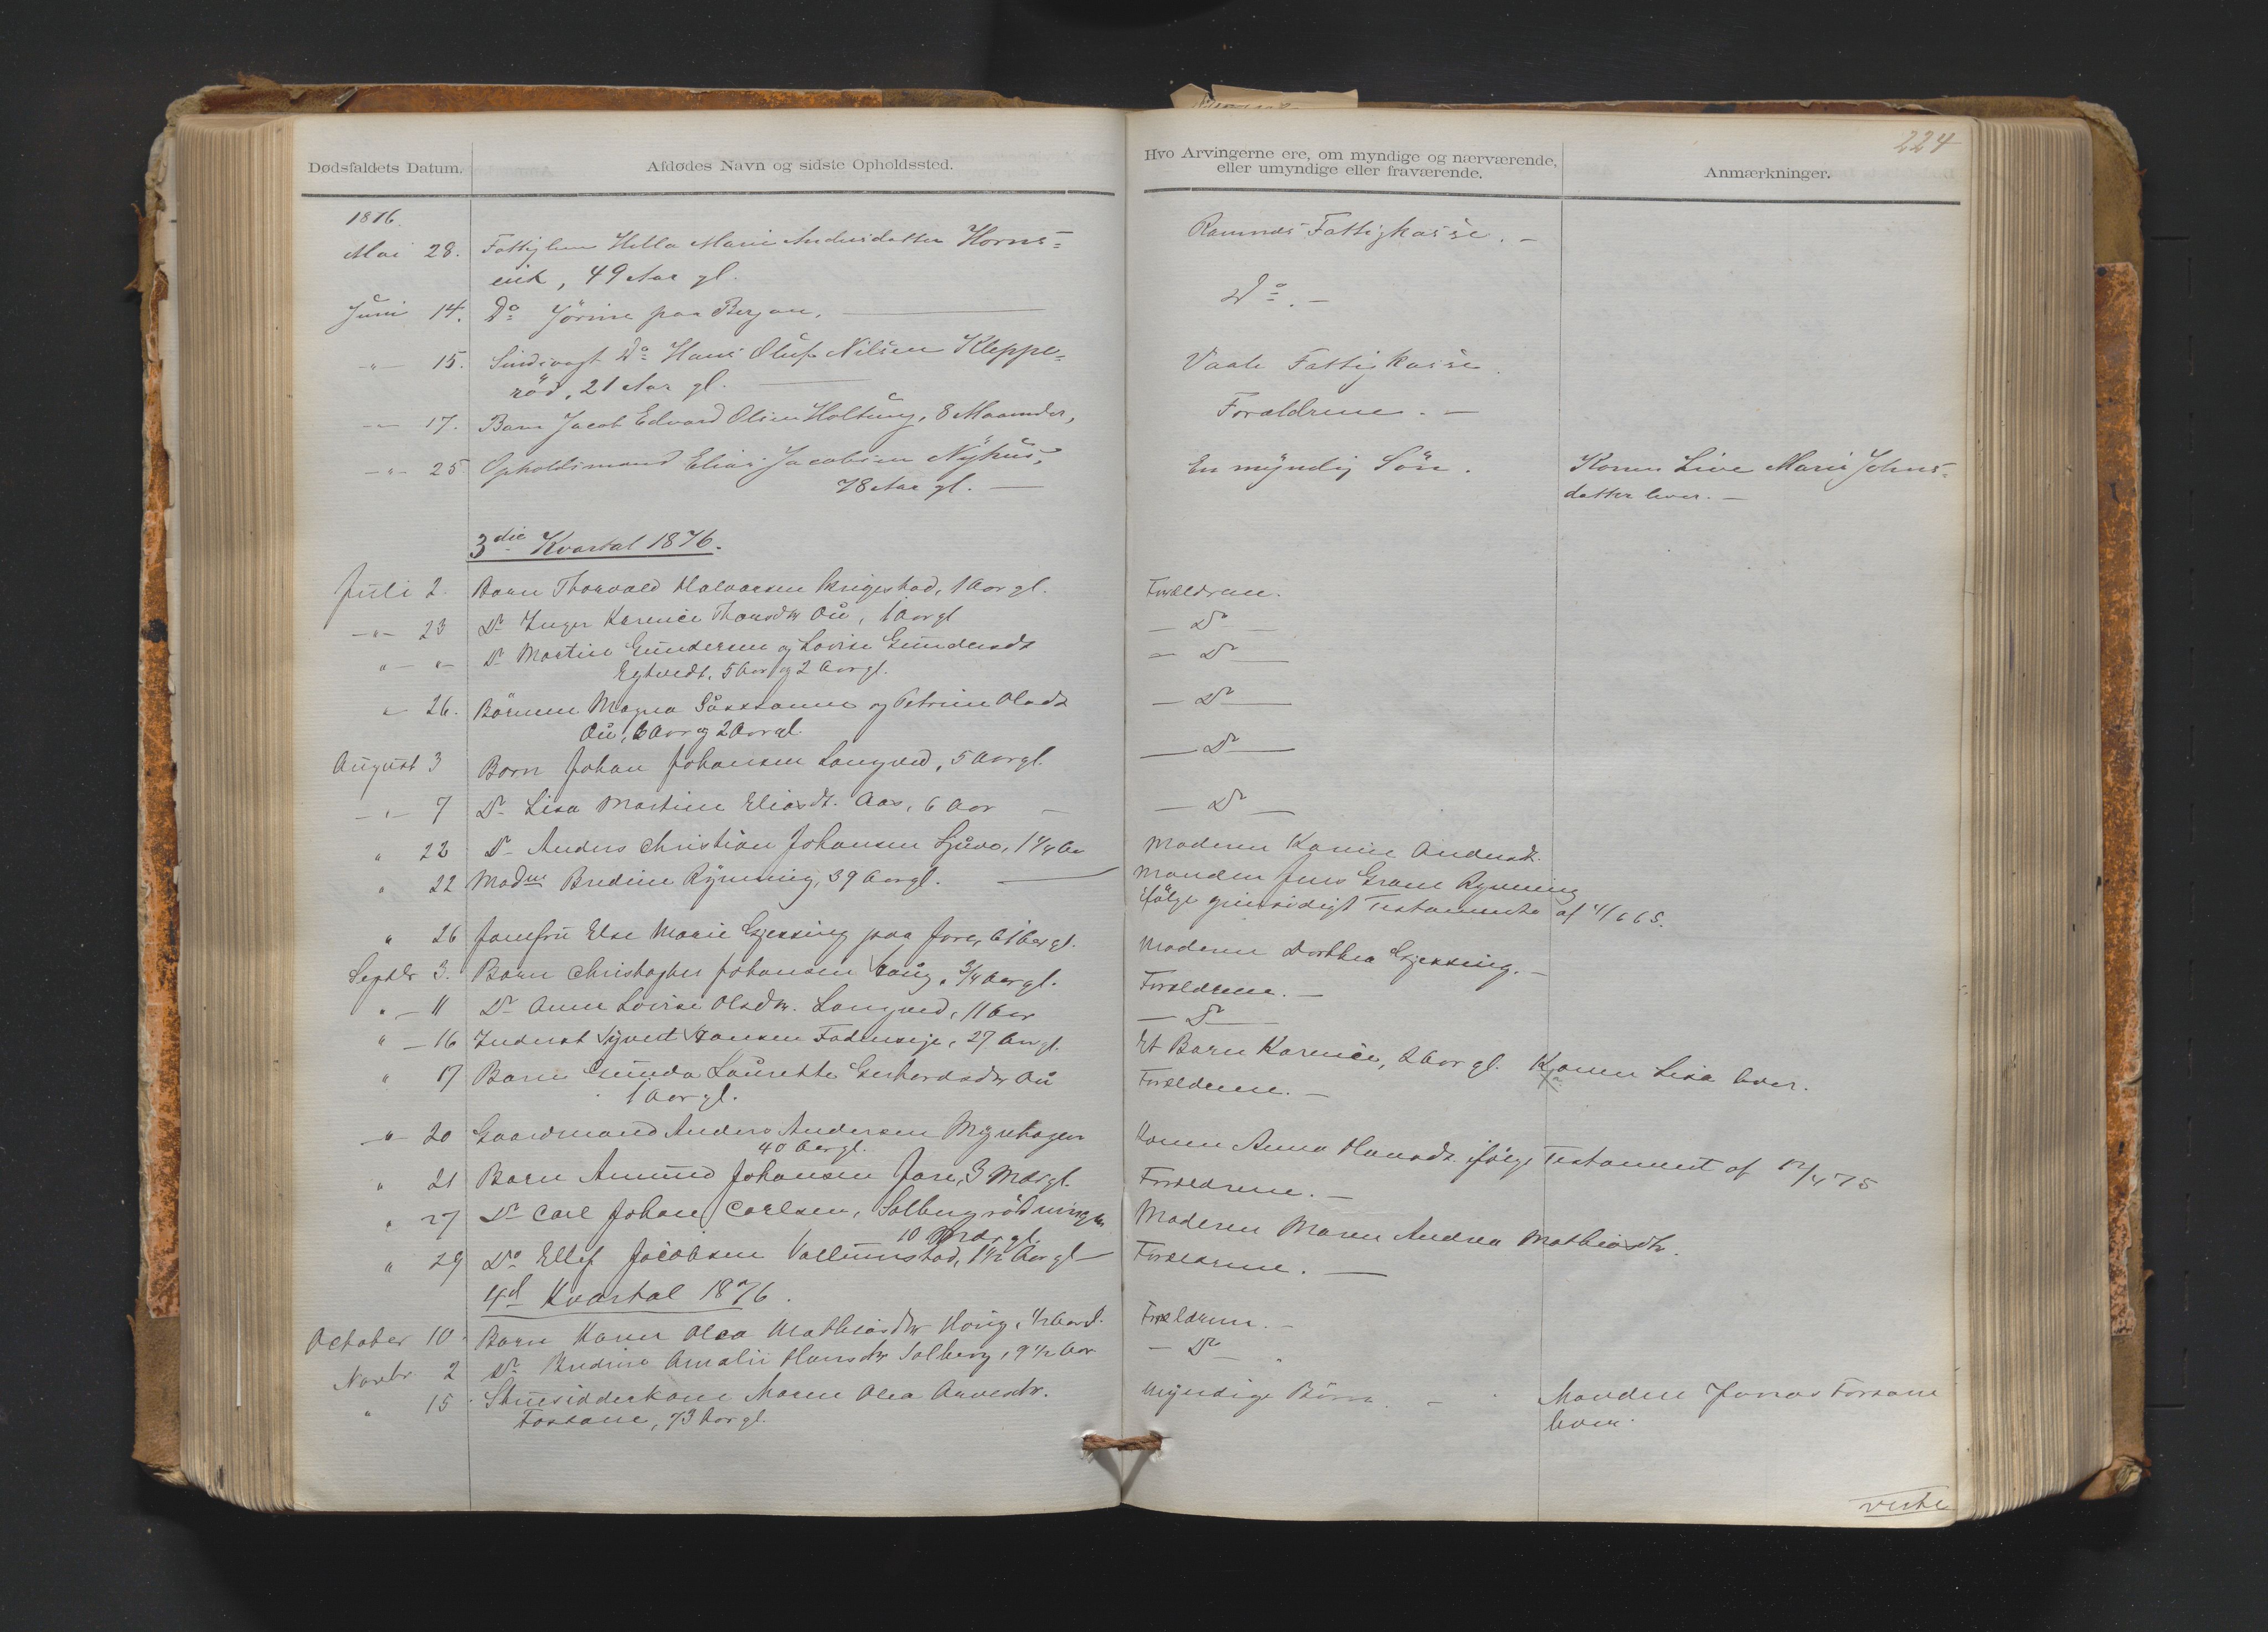 224
Dødsfaldets Datum.
Afdødes Navn og sidste Opholdssted.
Hvo Arvingerne ere, om myndige og nærværende,
eller umyndige eller fraværende.
Anmærkninger.
1876.
Mai 28. Fattiglem Hella Marie Andersdatter Horns=
eie, 49 Aar gl. Ramnæs Fattigkasse. —
Juni 14. Do Jörine paa Bergan, Do. —
-"- 15. Sindsvagt Do Hans Oluf Nilsen Kleppe=
röd, 21 Aar gl. Vaale Fattigkasse.
-"- 17. Barn Jacob Edvard Olsen Holtung, 8 Maaneder, Forældrene. —
-"- 25 Opholdsmand Elias Jacobsen Nyhus,
78 Aar gl. — En myndig Sön. Konen Live Marie Johns=
datter lever. —
3die Kvartal 1876.
Juli 2. Barn Thorvald Halvorsen 1 Aar gl. Forældrene.
-"- 23 Do Inger Karine Thorsdtr Au, 1 Aar gl — Do —
"- "- Do Martin Gundersen og Lovise Gundersdt
5 Aar og 2 Aar gl. — Do —
"- 26. Börnene Magna Susanne og Petrine Olsdt
Au, 6 Aar og 2 Aar gl. — Do —
August 3 Barn Johan Johansen Langved, 5 Aar gl. — Do —
-"- 7 Do Lisa Martine Eliasdt. Aas, 6 Aar — — Do —
" 22 Do Anders Christian Johansen 1 1/4 Aar Moderen Karine Andersdt.
" 22 Madme Bredine Rynning, 39 Aar gl. — Manden Jens Grane Rynning
ifölge gjensidigt Testamente af 4/6 65.
" 26 Jomfru Else Marie Gjessing paa Jare, 61 Aar gl. Moderen Dorthea Gjessing. —
Septbr 3. Barn Christopher Johansen Haug, 3/4 Aar gl. Forældrene. —
" — 11 Do Anne Lovise Olsdtr. Langved, 11 Aar — Do —
" — 16 Inderst Syvert Hansen 27 Aar gl. Et Barn Karine, 2 Aar gl. Konen Lisa lever.
" 17 Barn Gunda Laurette Gerhardsdtr Au
1 Aar gl. Forældrene. —
-"- 20 Gaardmand Anders Andersen Myrhagen
40 Aar gl. Konen Anne Hansdt. ifölge Testament af 12/4 75
" 21 Barn Amund Johansen Jare, 3 Mdr gl. Forældrene. —
" 27 Do Carl Johan Carlsen, Solberg
10 Mdr. gl. Moderen Maren Andrea Mathiasdtr.
" 29 Do Ellef Jacobsen Vallumstad, 1 1/2 Aar gl — Forældrene. —
4d Kvartal 1876.
October 10. Barn Karen Olea Mathiasdtr Haug, 1/2 Aar gl. Forældrene. —
Novbr 2 Do Bredine Amalie Hansdtr Solberg, 9 1/2 Aar — Do —
" 15 Huusidderkone Maren Olea
Fossane, 73 Aar gl. Myndige Börn. — Manden Jonas Fossane
lever.